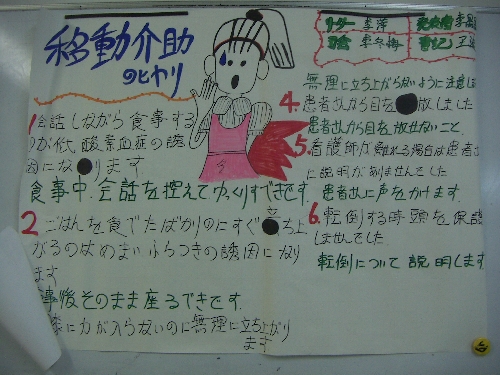 移動介助
のヒヤリ
リーダー 李萍
発表者 李
李冬梅
書記
1 会話しながら食事する
のが低酸素血症の誘
因になります
食事中、会話を控えてゆくりすできです.
2. ごはんを食でたばかりのにすぐ立ち上
がるのはめまい ふらつきの誘因になり
ます
食事後そのまま座るできです.
に力が入らないのに無理に立ち上がり
ます
無理に立ち上がらないように注意し
4. 患者さんから目を放しました
患者さんから目を放せないこと.
5. 看護師が離れる場合は患者
に説明がありませんでした
患者さんに声をかけます.
6. 転倒する時頭を保護
しませんでした
転倒について説明します